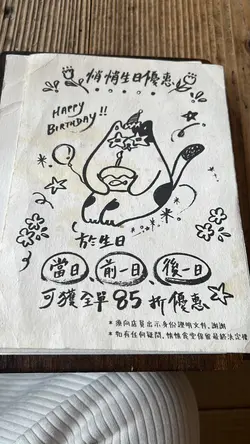 悄悄生日優惠
HAPPY
BIRTHDAY!!
於生日
當日、前一日、後一日
可獲全單85折優惠
*須向店員出示身份證明文件，謝謝
*如有任何疑問，悄悄食堂保留最終決定權